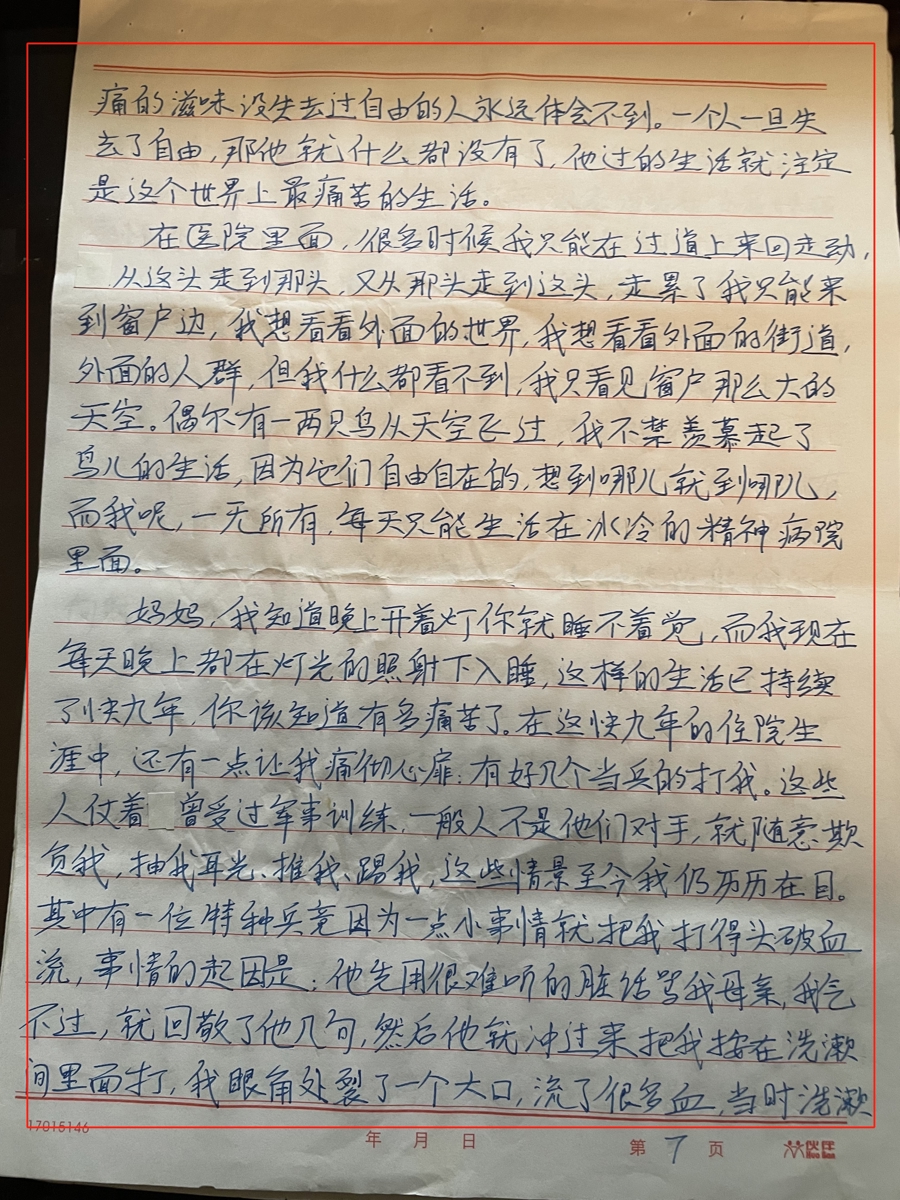 痛的滋味没失去过自由的人永远体会不到。一个人一旦失
去了自由，那他就什么都没有了，他过的生活就注定
是这个世界上最痛苦的生活。
在医院里面，很多时候我只能在过道上来回走动，
从这头走到那头，又从那头走到这头，走累了我只能来
到窗户边，我想看看外面的世界，我想看看外面的街道，
外面的人群，但我什么都看不到，我只看见窗户那么大的
天空。偶尔有一两只鸟从天空飞过，我不禁羡慕起了
鸟儿的生活，因为它们自由自在的，想到哪儿就到哪儿，
而我呢，一无所有，每天只能生活在冰冷的精神病院
里面。
妈妈，我知道晚上开着灯你就睡不着觉，而我现在
每天晚上都在灯光的照射下入睡，这样的生活已持续
了快九年，你该知道有多痛苦了。在这快九年的住院生
涯中，还有一点让我痛彻心扉：有好几个当兵的打我。这些
人仗着 曾受过军事训练，一般人不是他们对手，就随意欺
负我，抽我耳光、推我、踢我，这些情景至今我仍历历在目。
其中有一位特种兵竟因为一点小事情就把我打得头破血
流，事情的起因是：他先用很难听的脏话骂我母亲，我气
不过，就回敬了他几句，然后他就冲过来把我按在洗漱
间里面打，我眼角处裂了一个大口，流了很多血，当时洗漱
17015146
年 月 日
第 7 页
伙伴